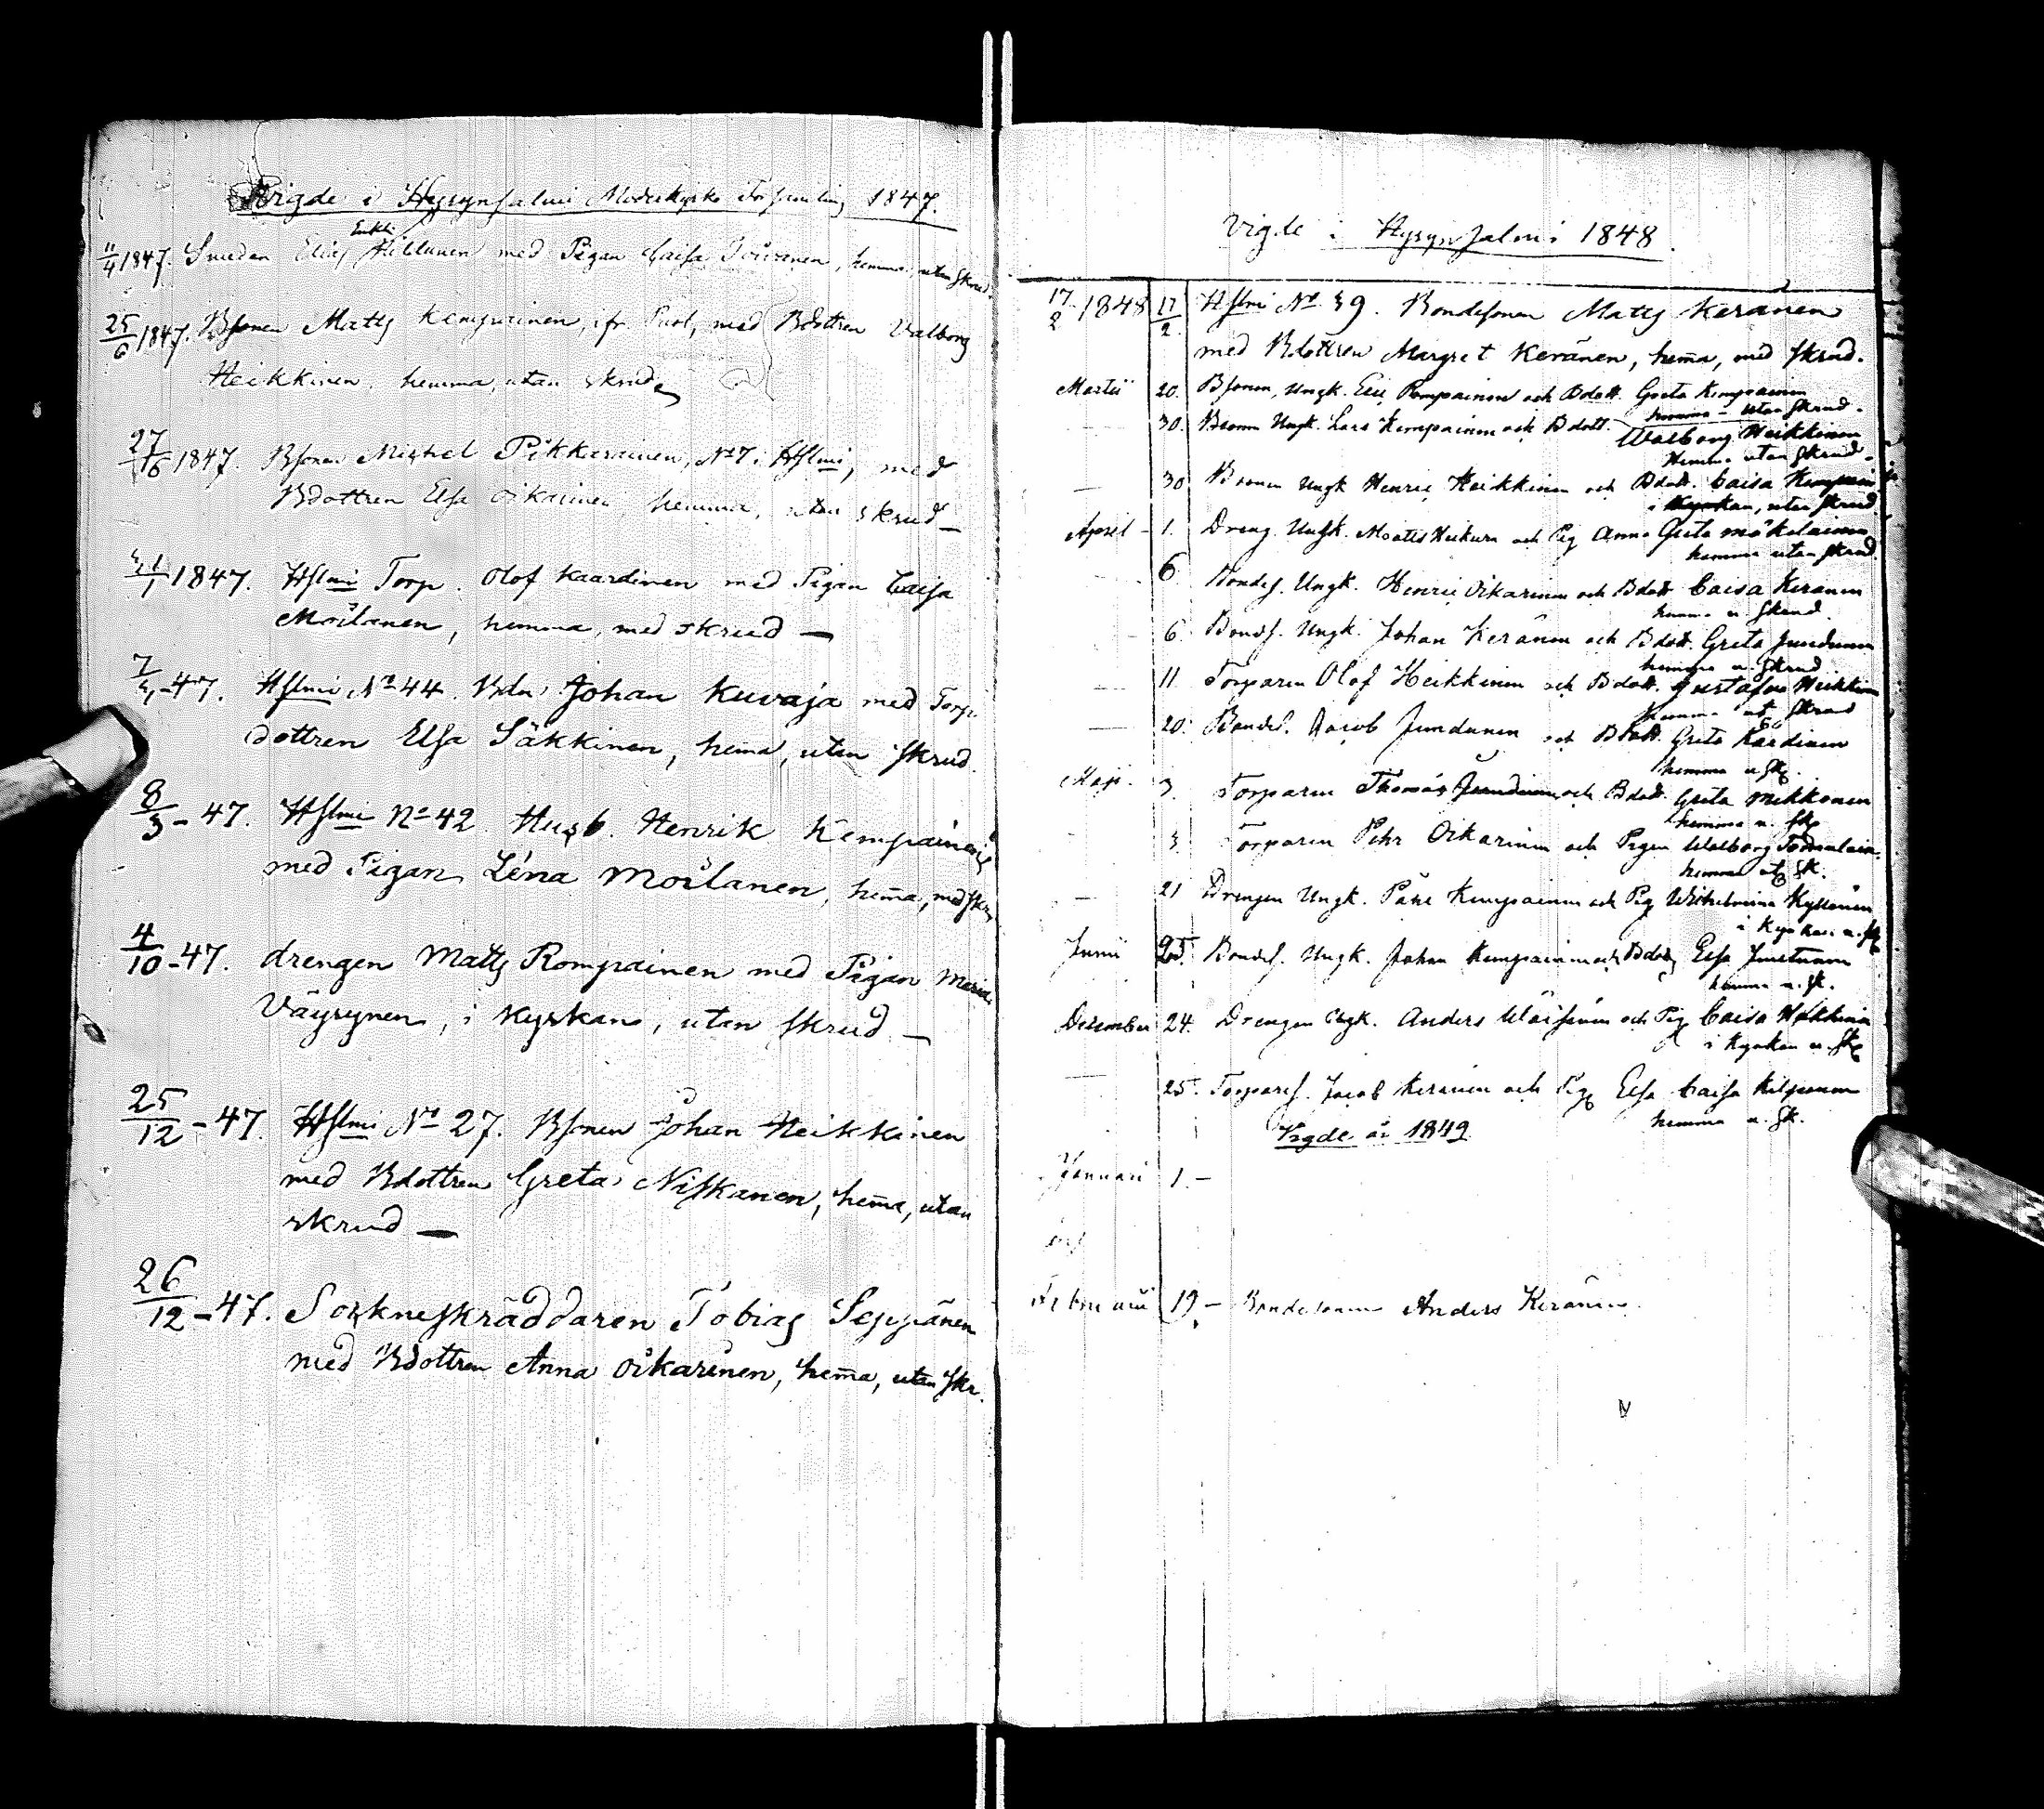 Vigde i Hyrynsalmi Moderkyrko Församling 1847.
Enkl.
11/4 1847. Smeden Elias Hiltunen med Pigan Caisa Toivanen, hemma, utan skrud.
25/6 1847. Bsonen Matts Kemppainen, ifr. Puol, med Bdottren Valborg
Heikkinen, hemma, utan skrud
27/6 1847. Bsonen Michel Pikkarainen, No 7 i Hslmi, med
Bdottren Elsa Oikarinen, hemma, utan skrud –
1847. Hslmi Torp. Olof Kaardinen med Pigan Caisa
Moilanen, hemma, med skrud –
– 47. Hslmi No 44. Bdn Johan Kuvaja med Torp.
dottren Elsa Säkkinen, hema, utan skrud.
8/3 – 47. Hslmi No 42 Husb. Henrik Kempainen
med Pigan Lena Moilanen, hema, med skr
4/10 – 47. drengen Matts Rompainen med Pigan Maria
Väyrynen, i kyrkan, utan skrud –
25/12 – 47. Hslmi No 27. Bsonen Johan Heikkinen
med Bdottren Greta Niskanen, hema, utan
skrud –
26/12 – 47. Sockneskräddaren Tobias Seppänen
med Bdottren Anna Oikarinen, hema, utan skr.
Vigde i Hyrynsalmi 1848.
17/2 1848 17/2 Hslmi No 39. Bondesonen Matts Keränen
med Bdottren Margret Keränen, hema, med skrud.
Martii 20. Bsonen, Ungk. Eric Rompainen och Bdott. Greta Kempainen
hemma – utan skrud.
– 30. Bsonen Ungk. Lars Kempainen och Bdott. Walborg Heikkinen
Hemma utan skrud.
– 30 Bsonen Ungk Henric Heikkinen och Bdott. Caisa Kempain
i Kyrkan, utan skrud.
April – 1. Dreng. Ungk. Matts Heikura och Pig Anna Greta Mökelainen
hemma utan skrud.
6. Bondes. Ungk. Henric Oikarinen och Bdott Caisa Keranen
hemma u. skrud.
– 6. Bonds. Ungk. Johan Keränen och Bdott. Greta Jundunen
hemma u. skrud
11. Torparen Olof Heikkinen och Bdott. Gustafva Heikkinen
hemma ut skrud
– 20. Bondes. Jacob Jundunen och Bdott. Greta Kardinen
hemma u sk.
Maji. 3. Torparen Thomas Jundunen och Bdott. Greta Mikkonen
hemma u. sk
– 3. Torparen Pehr Oikarinen och Pigan Walborg
hemma ut sk.
– 21 Drengen Ungk. Kempainen och Pig Wilhelmina Kyllönen
i Kyrkan u. sk
Junii 25. Bondes. Ungk. Johan Kempainen och Bdott Elsa Juntunen
hemma u. sk.
December 24. Drengen Ungk. Anders Wäisänen och Pig Caisa Heikkinen
i Kyrkan u. sk
– 25. Torpares. Jacob Keränen och Pig Elsa Caisa Kilpunen
hemma u. sk.
Vigde år 1849
Januari 1. –
Februarii 19 – Bondesonen Anders Keränen.